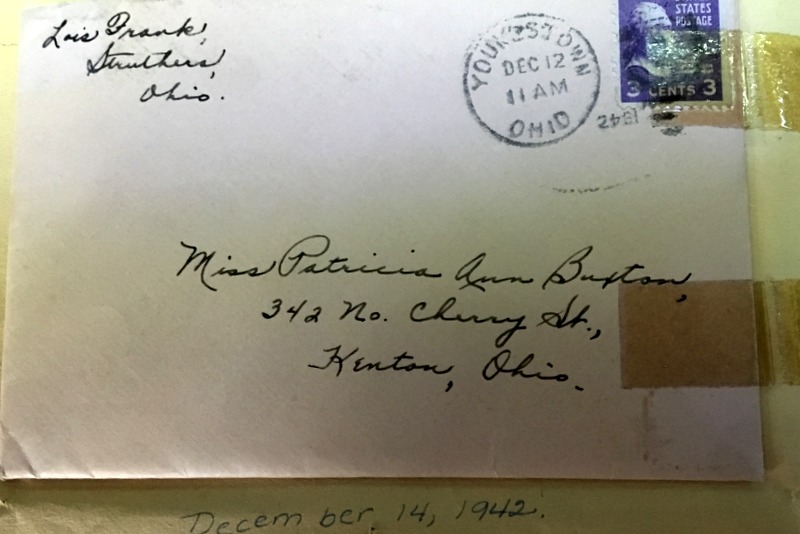 Lois Frank,
Struthers,
Ohio.
YOUNGSTOWN
DEC 12
11 AM
1942
OHIO
STATES
POSTAGE
3 CENTS 3
Miss Patricia Ann Buxton,
342 No. Cherry St.,
Kenton, Ohio.
December, 14, 1942.